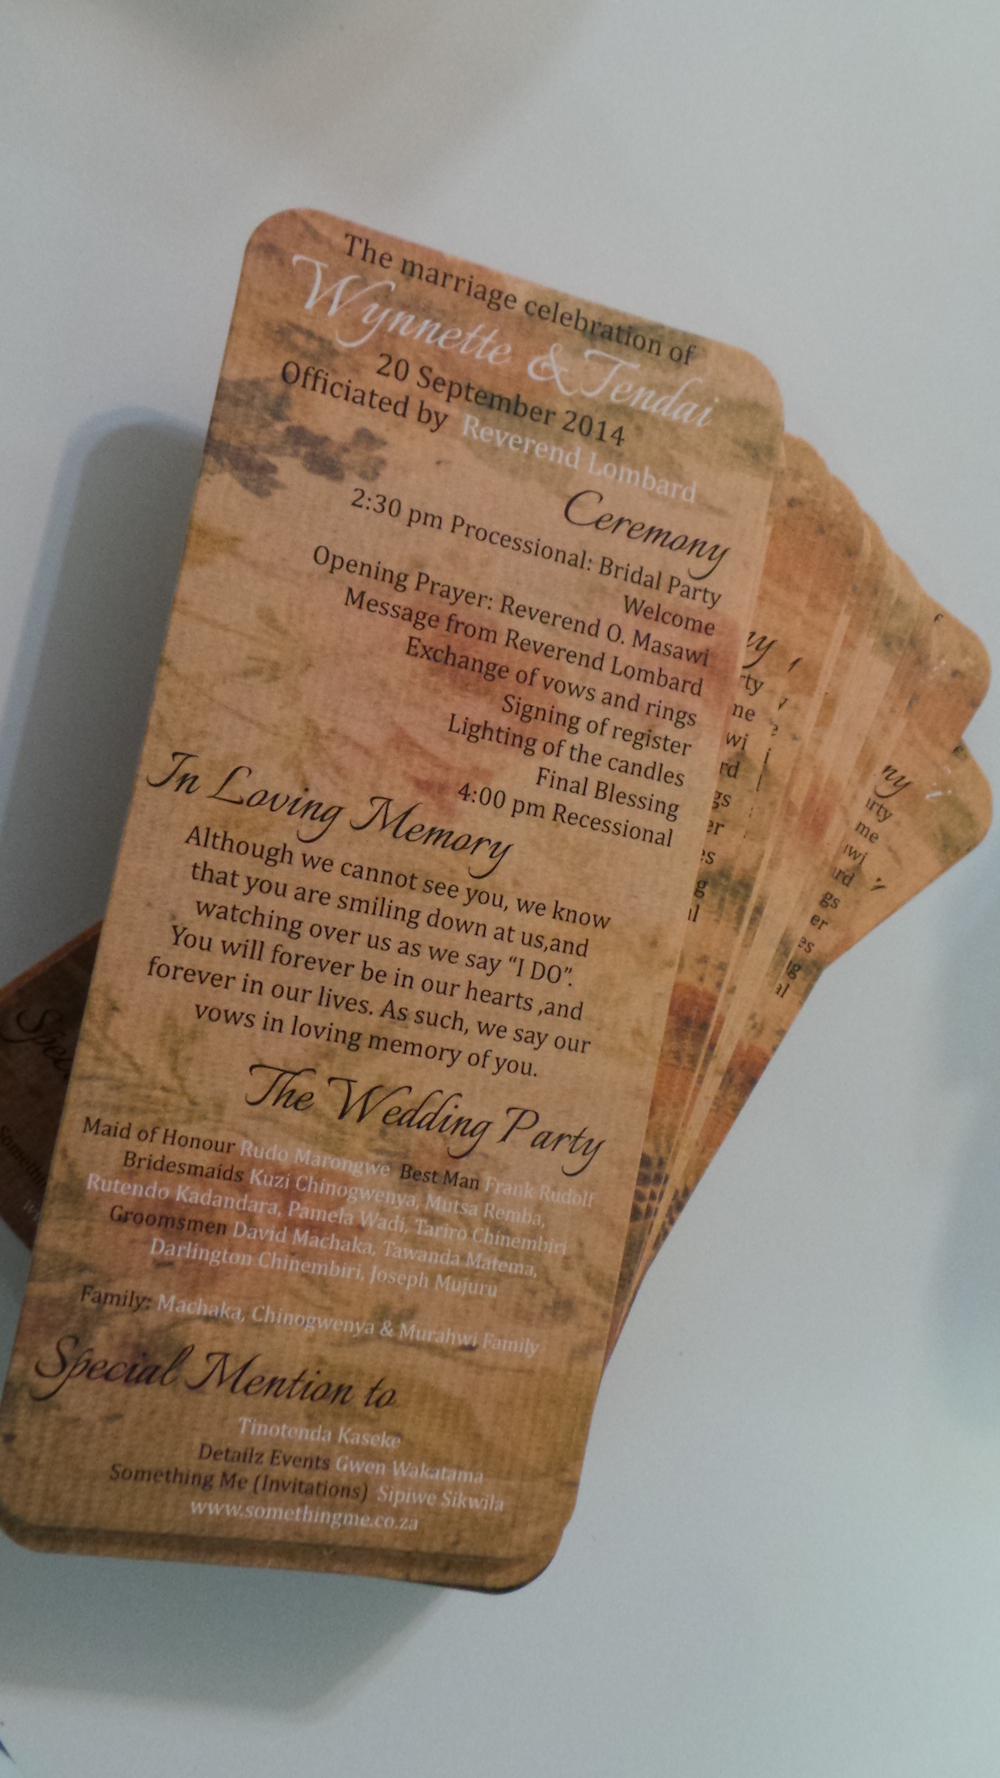 The marriage celebration of
Wynnette & Tendai
20 September 2014
Officiated by Reverend Lombard
Ceremony
2:30 pm Processional: Bridal Party
Welcome
Opening Prayer: Reverend O. Masawi
Message from Reverend Lombard
Exchange of vows and rings
Signing of register
Lighting of the candles
Final Blessing
4:00 pm Recessional
In Loving Memory
Although we cannot see you, we know
that you are smiling down at us,and
watching over us as we say “I DO”.
You will forever be in our hearts ,and
forever in our lives. As such, we say our
vows in loving memory of you.
The Wedding Party
Maid of Honour Rudo Marongwe Best Man Frank Rudolf
Bridesmaids Kuzi Chinogwenya, Mutsa Remba,
Rutendo Kadandara, Pamela Wadi, Tariro Chinembiri
Groomsmen David Machaka, Tawanda Matema,
Darlington Chinembiri, Joseph Mujuru
Family: Machaka, Chinogwenya & Murahwi Family
Special Mention to
Tinotenda Kaseke
Detailz Events Gwen Wakatama
Something Me (Invitations) Sipiwe Sikwila
www.somethingme.co.za